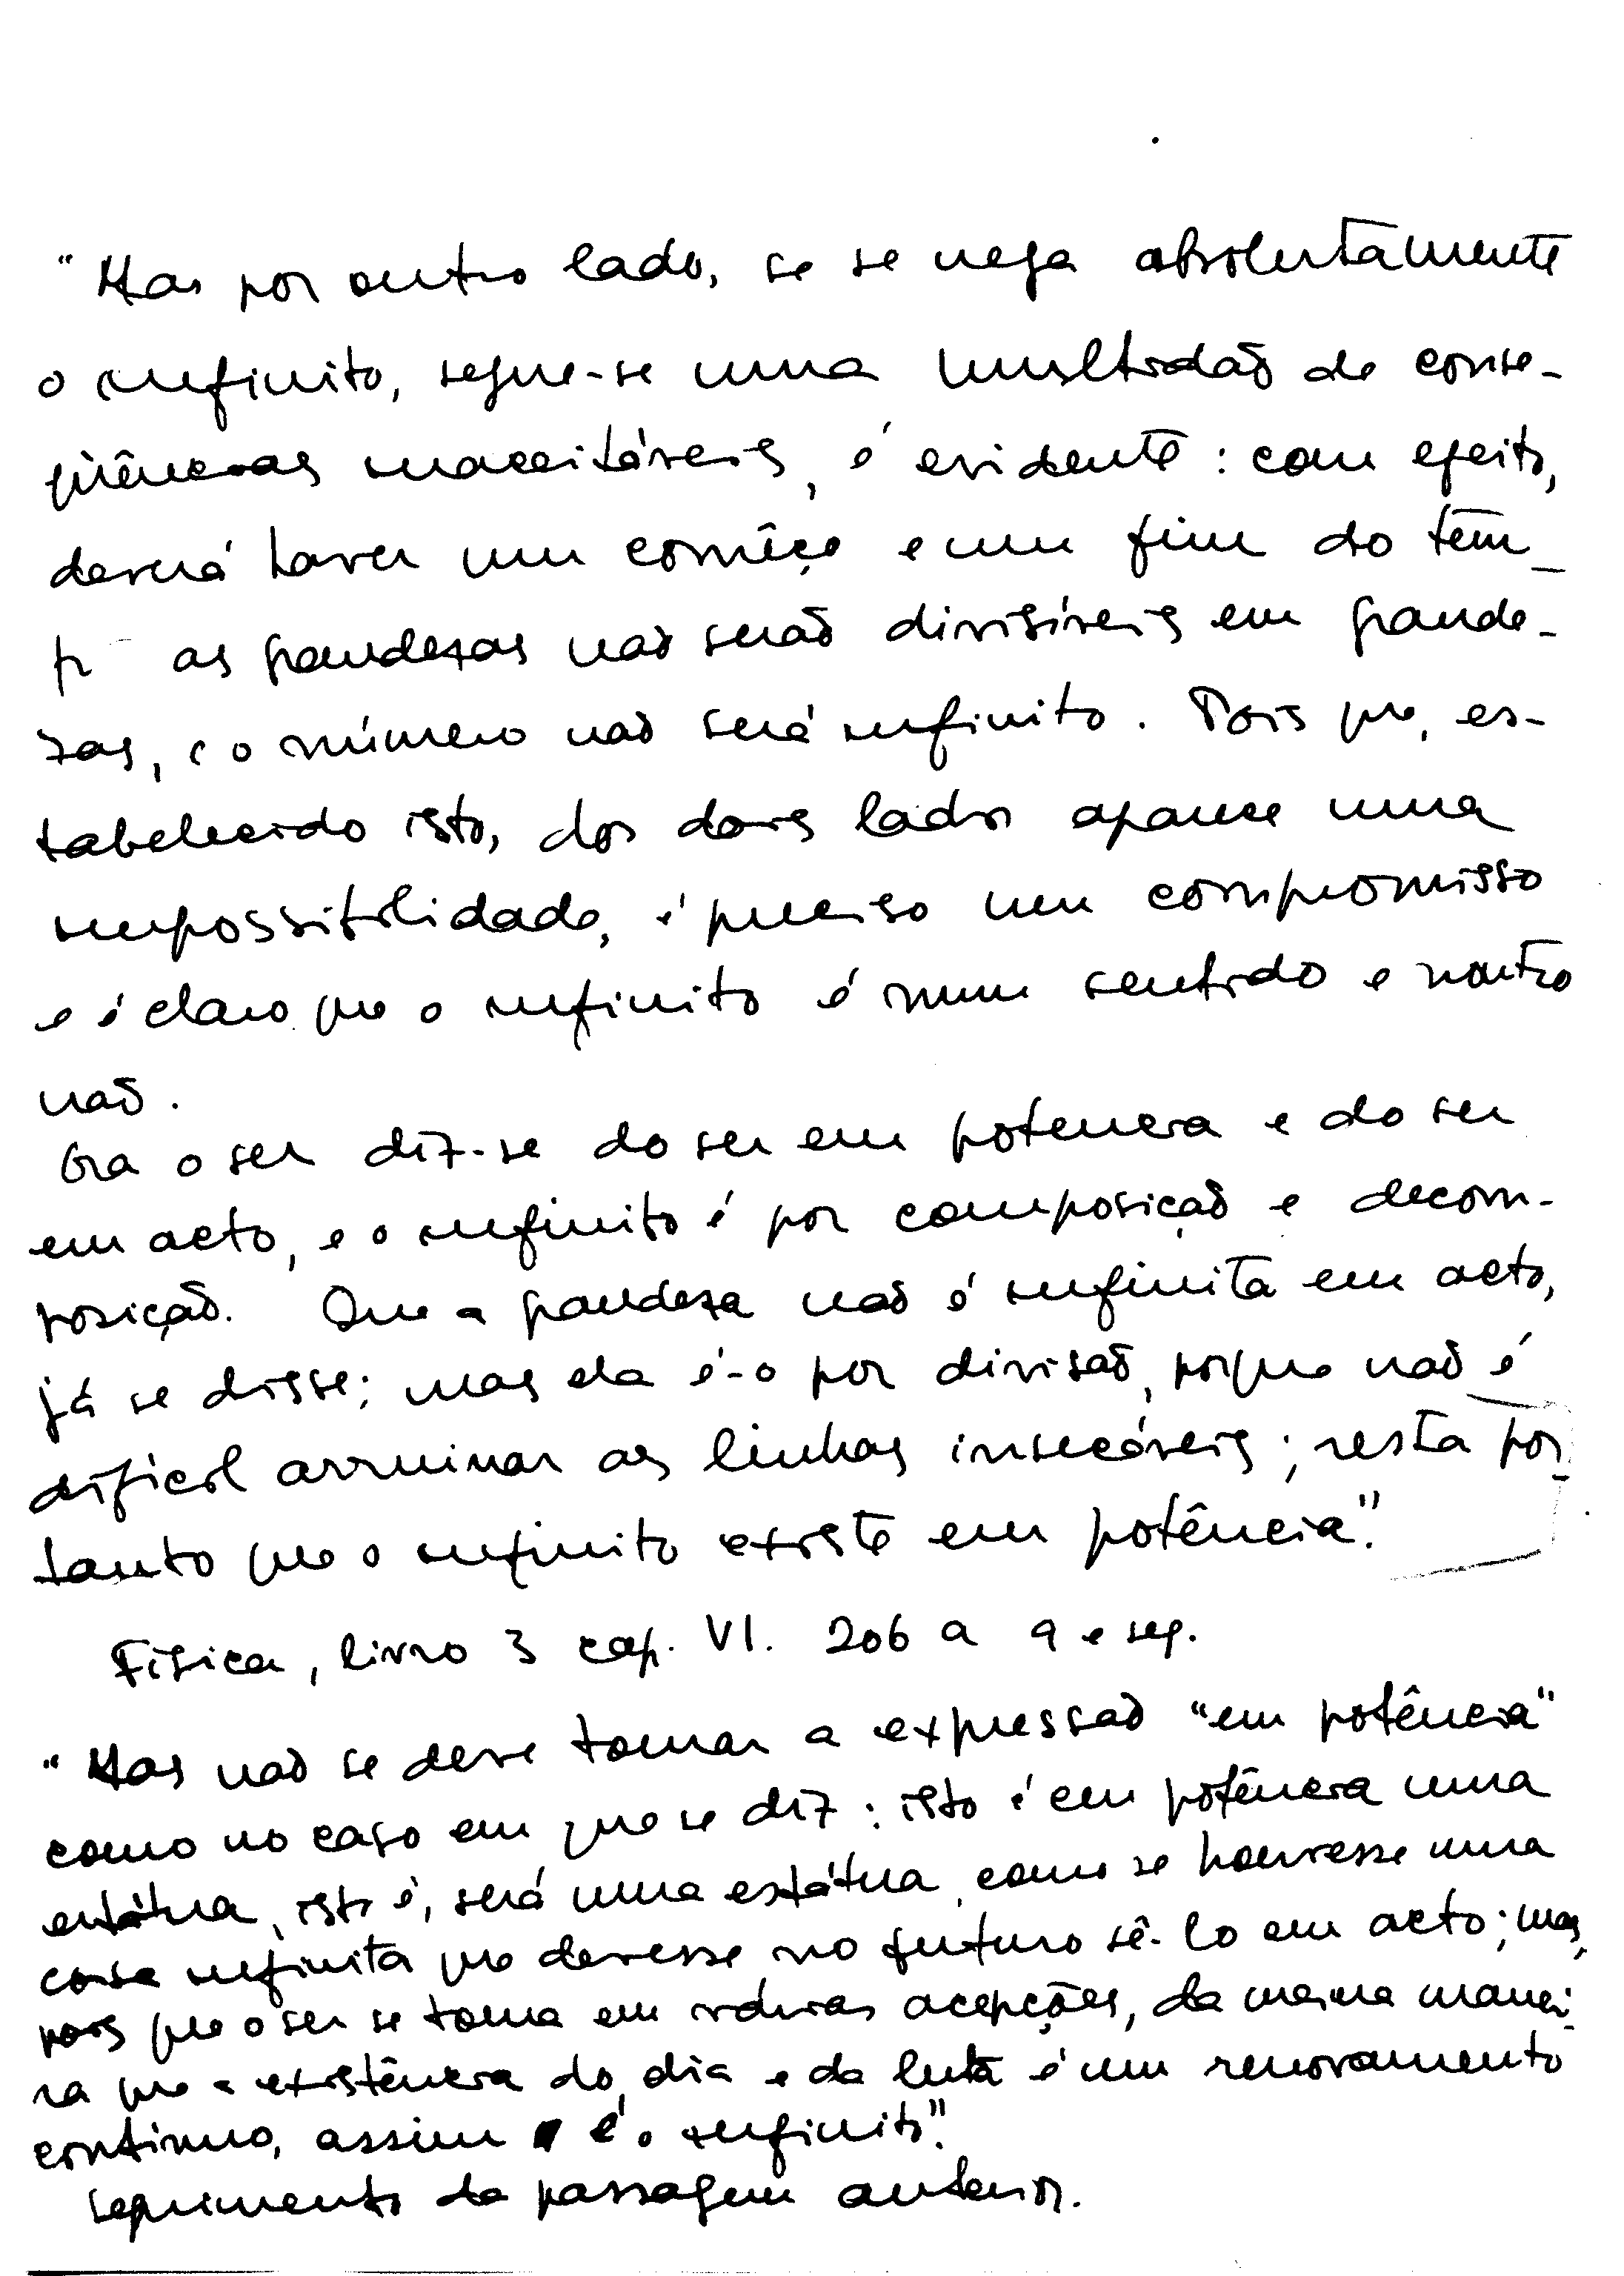 "Mas por outro lado, se se nega absolutamente
o infinito, segue-se uma multidão de conse-
qüências inaceitáveis, é evidente: com efeito,
deverá haver um comêço e um fim do tem-
p as grandezas não serão divisíveis em grande-
zas, e o número não será infinito. Pois que, es-
tabelecido isto, dos dois lados aparece uma
impossibilidade, é preciso um compromisso
e é claro que o infinito é num sentido e noutro
não.
Ora o ser diz-se do ser em potencia e do ser
em acto, e o infinito é por composição e decom-
posição. Que a grandeza não é infinita em acto,
já se disse; mas ela é-o por divisão, porque não é
dificil arruinar as linhas insecáveis; resta por-
tanto que o infinito existe em potência".
Física, livro 3 cap. VI. 206 a 9 e seg.
"Mas não se deve tomar a expressão "em potência"
como no caso em que se diz: isto é em potência uma
estátua, isto é, será uma estátua, como se houvesse uma
coisa infinita que devesse no futuro sê-lo em acto; mas,
pois que o ser se toma em várias acepções, da mesma manei-
ra que a existência do dia e da luta é um renovamento
continuo, assim é o infinito".
seguimento da passagem anterior.